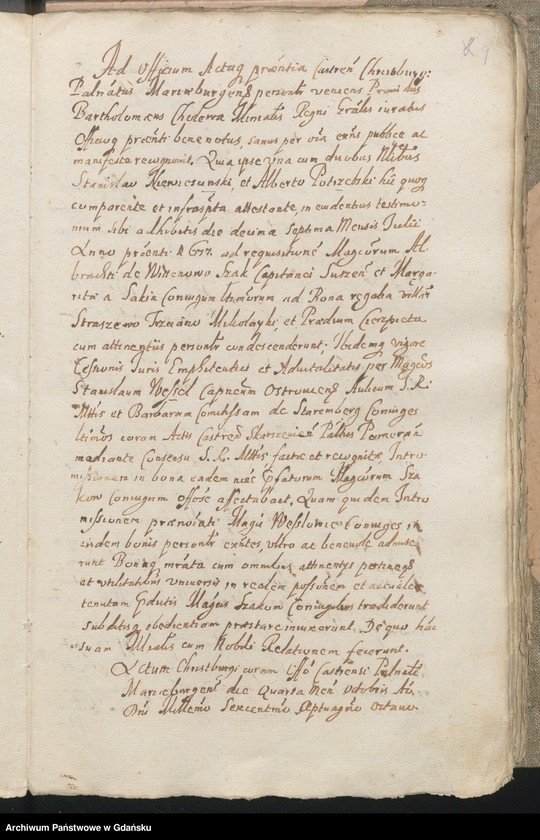 9
Ad Officium Actaq præntia Castren Christburg:
Palnatus Marieburgens personlr veniens Providus
Bartholomæus Ministlis Regni Gralis iuratus
Officioq prænti bene notus, sanus per oia exns publice ac
manifeste recognovit, Quia ipse una cum duobus Nlibus
Stanislao et Alberto Potrzebski hic quoq
comparente et infrascpta attestante, in evidentius testimo-
nium sibi adhibitis die decima septima Mensis Julii
Anno prænti 1678. ad requisitione Magcorum Al-
brachti de Wittenowo Szak Capitanei et Marga-
ritæ a Coniugum ltimorum ad Bona regalia villar
Straszewo Trzciano Mikolayki, et Prædium Cierzpieta
cum attinentiis personlr condescenderunt. Ibidemq vigore
Cessionis Juris Emphitentici et Advitalitatis per Magcos
Stanislaum Wessel Capneum Ostroviens Aulicum S. R.
Mttis et Barbaram Comitissam de Staremberg Coniuges
ltimos coram Actis Castrens Skarszevien Pallus Pomeran
mediante Consensu S. R. Mttis factæ et recognitæ Intro-
missionem in bona eadem præfatorum Magcorum Sza-
kow Coniugum offose affectavit, Quam quidem Intro
missionem prænoiati Magci Wesslowie Coniuges in
eisdem bonis personlr exntes, ultro ac benevole admise
runt Bonaq cum omnibus attinentys pertinens
et utilitatibus universis in realem possnem et actualem
tenutam Magcis Szakom Coniugibus tradiderunt
subditisq obedientiam præstare iniunxerunt. De quo hac
suam Mrialis cum Nobili Relationem fecerunt.
Actum Christburgi coram Offo Castrensi Palnate
Marieburgens die Quarta Mens Octobris Ao.
Dni Millemo Sexcentmo Septuagmo Octavo.
Archiwum Państwowe w Gdańsku